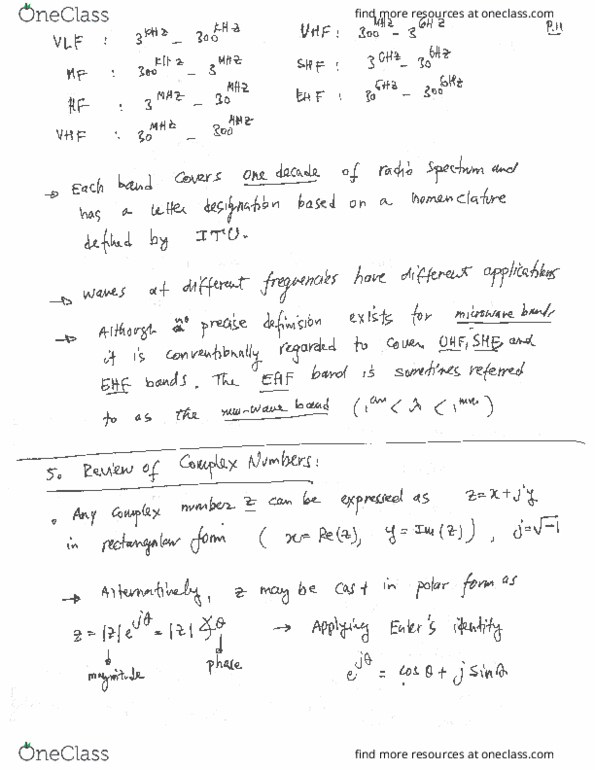 OneClass
find more resources at oneclass.com
VLF : 3 kHz - 300 kHz UHF : 300 MHz - 3 GHz P.11
MF : 300 kHz - 3 MHz SHF : 3 GHz - 30 GHz
HF : 3 MHz - 30 MHz EHF : 30 GHz - 300 GHz
VHF : 30 MHz - 300 MHz
→ Each band covers one decade of radio spectrum and
has a letter designation based on a nomenclature
defined by ITU.
→ Waves at different frequencies have different applications
→ Although no precise definision exists for microwave band,
it is conventionally regarded to cover UHF, SHF and
EHF bands. The EHF band is sometimes referred
to as the mm-wave band (1 cm < λ < 1 mm)
5. Review of Complex Numbers:
• Any complex number z can be expressed as z=x+jy
in rectangular form (x=Re(z), y=Im(z)), j=√-1
→ Alternatively, z may be cast in polar form as
z=|z|e^jθ=|z|∠θ → Applying Euler's identity
magnitude phase e^jθ = cosθ + j sinθ
OneClass
find more resources at oneclass.com